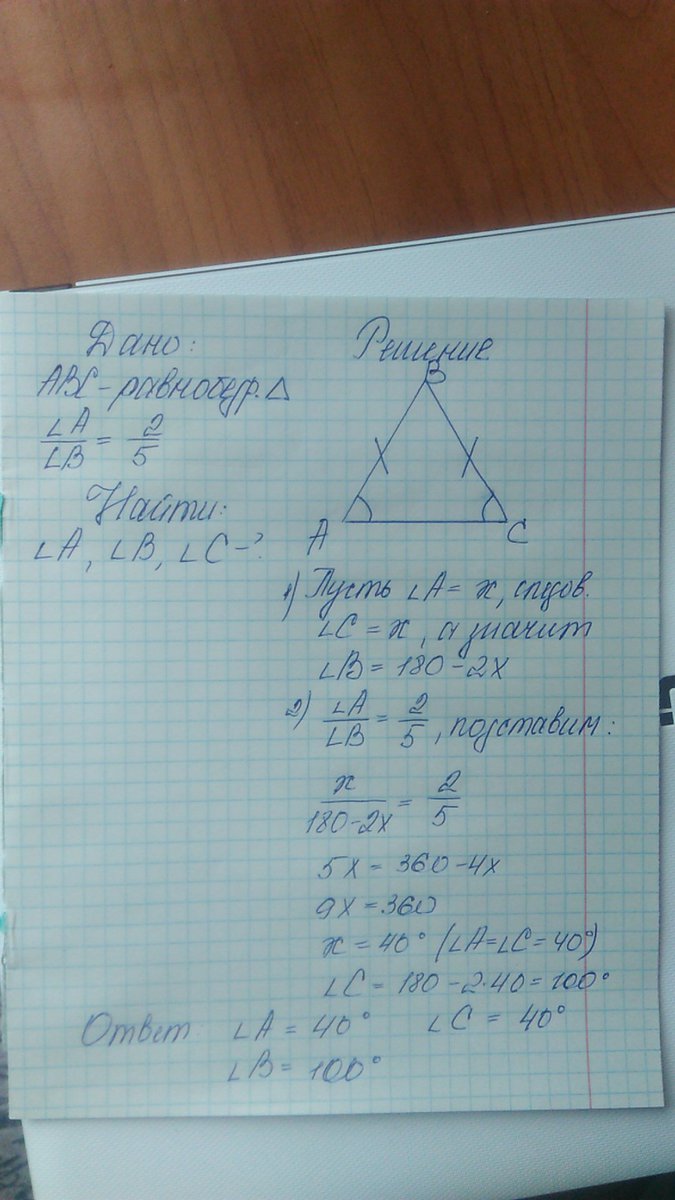 Дано:
ABC - равнобедр. △
∠A/∠B = 2/5
Найти:
∠A, ∠B, ∠C - ?
Решение
B
A
C
1) Пусть ∠A = x, следов.
∠C = x, а значит
∠B = 180 - 2x
2) ∠A/∠B = 2/5, подставим:
x/(180-2x) = 2/5
5x = 360 - 4x
9x = 360
x = 40° (∠A=∠C=40°)
∠C = 180 - 2·40 = 100°
Ответ: ∠A = 40° ∠C = 40°
∠B = 100°